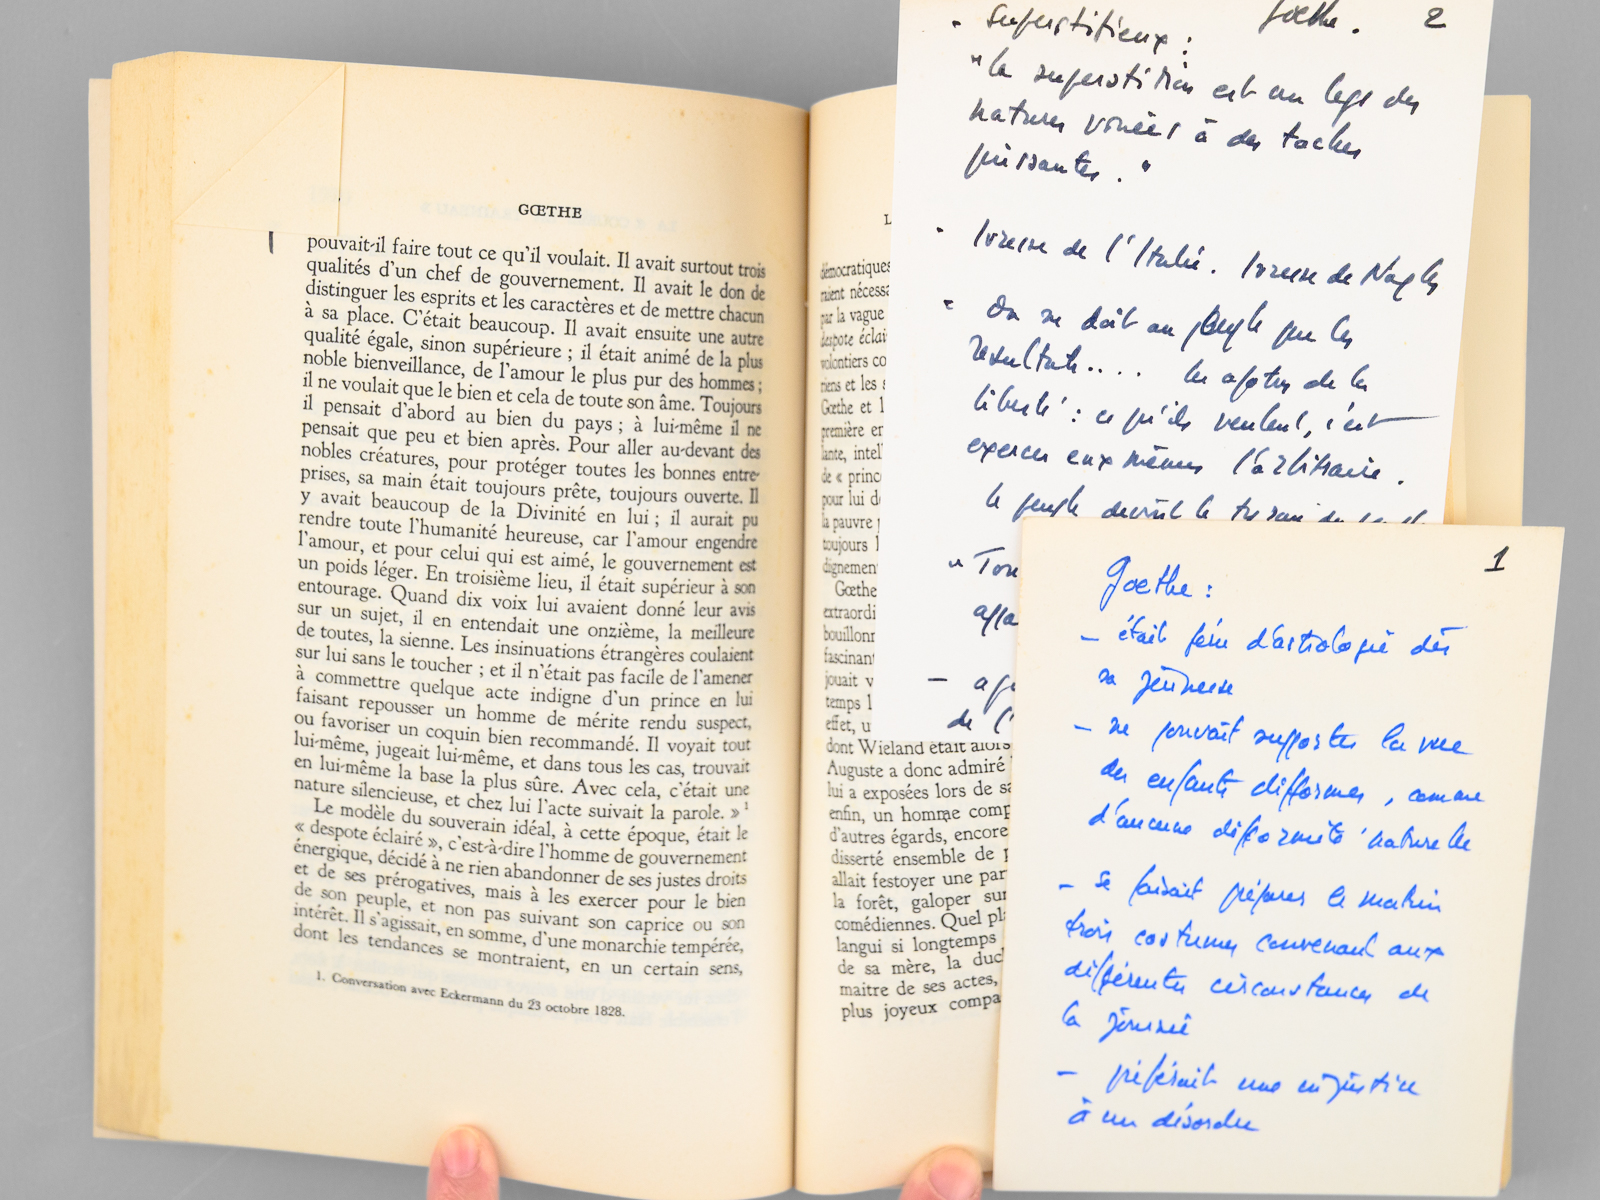 GŒTHE
pouvait-il faire tout ce qu'il voulait. Il avait surtout trois
qualités d'un chef de gouvernement. Il avait le don de
distinguer les esprits et les caractères et de mettre chacun
à sa place. C'était beaucoup. Il avait ensuite une autre
qualité égale, sinon supérieure ; il était animé de la plus
noble bienveillance, de l'amour le plus pur des hommes ;
il ne voulait que le bien et cela de toute son âme. Toujours
il pensait d'abord au bien du pays ; à lui-même il ne
pensait que peu et bien après. Pour aller au-devant des
nobles créatures, pour protéger toutes les bonnes entre-
prises, sa main était toujours prête, toujours ouverte. Il
y avait beaucoup de la Divinité en lui ; il aurait pu
rendre toute l'humanité heureuse, car l'amour engendre
l'amour, et pour celui qui est aimé, le gouvernement est
un poids léger. En troisième lieu, il était supérieur à son
entourage. Quand dix voix lui avaient donné leur avis
sur un sujet, il en entendait une onzième, la meilleure
de toutes, la sienne. Les insinuations étrangères coulaient
sur lui sans le toucher ; et il n'était pas facile de l'amener
à commettre quelque acte indigne d'un prince en lui
faisant repousser un homme de mérite rendu suspect,
ou favoriser un coquin bien recommandé. Il voyait tout
lui-même, jugeait lui-même, et dans tous les cas, trouvait
en lui-même la base la plus sûre. Avec cela, c'était une
nature silencieuse, et chez lui l'acte suivait la parole. » ¹
Le modèle du souverain idéal, à cette époque, était le
« despote éclairé », c'est-à-dire l'homme de gouvernement
énergique, décidé à ne rien abandonner de ses justes droits
et de ses prérogatives, mais à les exercer pour le bien
de son peuple, et non pas suivant son caprice ou son
intérêt. Il s'agissait, en somme, d'une monarchie tempérée,
dont les tendances se montraient, en un certain sens,
1. Conversation avec Eckermann du 23 octobre 1828.
L
démocratiques
raient nécessa
par la vague
despote éclai
volontiers co
riens et les
Gœthe et l
première en
lante, intel
de « princ
pour lui d
la pauvre
toujours l
dignemen
Gœthe
extraordi
bouillonn
fascinant
jouait v
temps l
effet, u
dont Wieland était alors
Auguste a donc admiré
lui a exposées lors de sa
enfin, un homme comp
d'autres égards, encore
disserté ensemble de p
allait festoyer une par
la forêt, galoper sur
comédiennes. Quel pl
langui si longtemps
de sa mère, la duc
maître de ses actes,
plus joyeux compa
Goethe. 2
- superstitieux :
"la superstition est un legs des
natures vouées à des taches
puissantes."
- Ivresse de l'Italie. Ivresse de Naples
- On ne doit au peuple que les
résultats.... les apotres de la
liberté : ce qu'ils veulent, c'est
exercer eux mêmes l'arbitraire.
le peuple devient le tyran du peuple
"Tou
affa
de l'
1
Goethe :
- était féru d'astrologie dès
sa jeunesse
- ne pouvait supporter la vue
des enfants difformes, comme
d'aucune difformité naturelle
- se faisait préparer le matin
trois costumes convenant aux
différentes circonstances de
la journée
- préférait une injustice
à un désordre